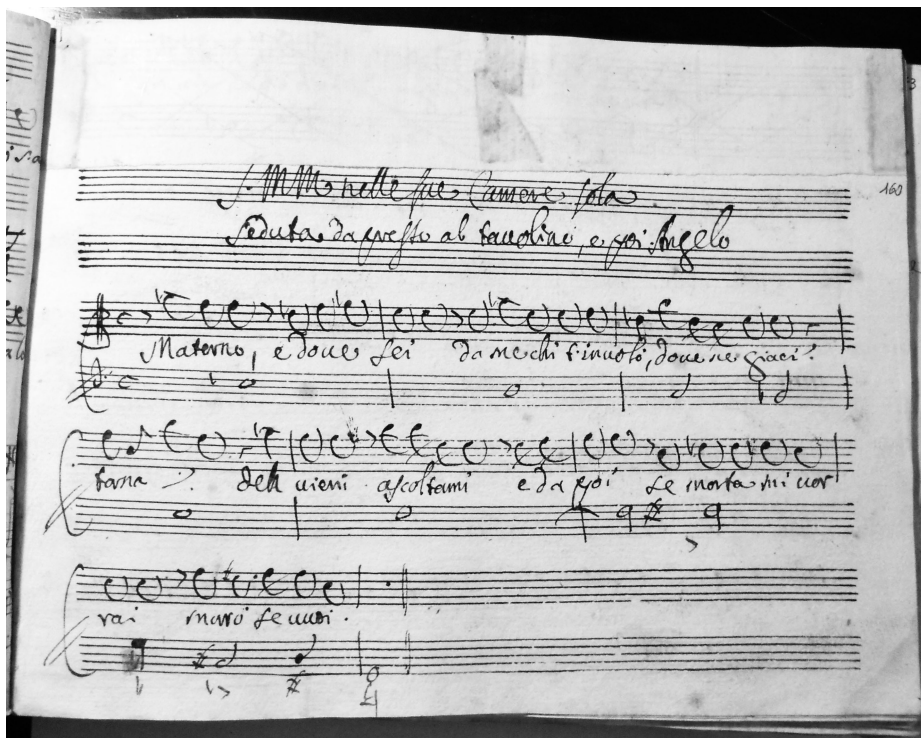 S. MM. nelle sue Camere sola
seduta da presso al tauolino, e poi Angelo
160
Materno, e doue sei da me chi t'inuolò, doue ne giaci?
torna? deh uieni ascoltami e da poi se morta mi uor
rai morò se uuoi.